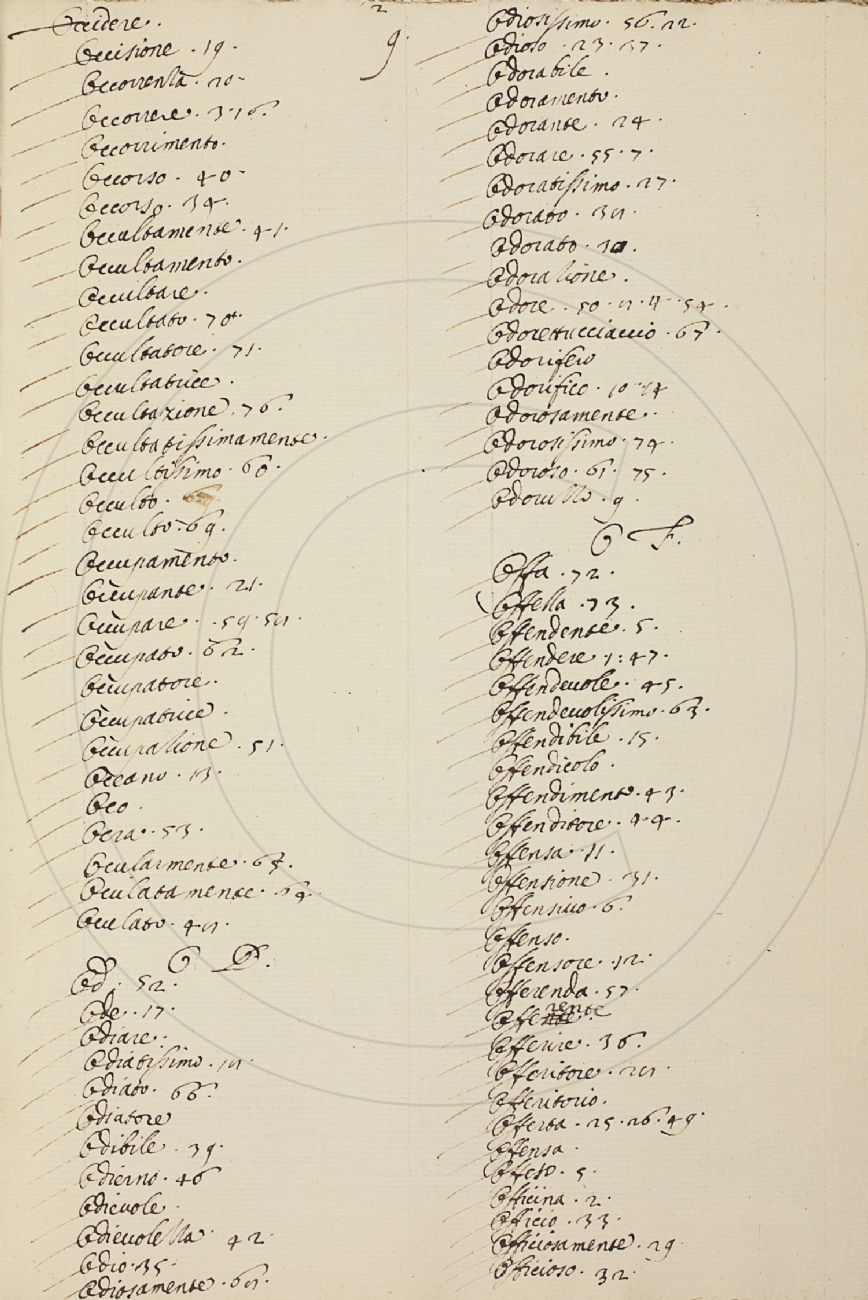 Occidere.
Occisione. 19.
Occorrenza. 20.
Occorrere. 3. 16.
Occorrimento.
Occorso. 40.
Occorso. 34.
Occultamente. 41.
Occultamento.
Occultare.
Occultato. 70.
Occultatore. 71.
Occultatrice.
Occultazione. 76.
Occultatissimamente.
Occultissimo. 60.
Occulto.
Occulto. 69.
Occupamento.
Occupante. 21.
Occupare.
Occupato. 62.
Occupatore.
Occupatrice.
Occupazione. 51.
Oceano. 13.
Oco.
Ocra. 53.
Ocularmente.
Oculatamente. 64.
Oculato.
O D.
Od. 52.
Ode. 17.
Odiare.
Odiatissimo.
Odiato. 66.
Odiatore
Odibile. 39.
Odierno. 46
Odievole.
Odievolella. 42.
Odio. 35.
Odiosamente.
2
9.
Odiosissimo. 56. 22.
Odioso. 23. 37.
Odorabile.
Odoramento.
Odorante. 24.
Odorare. 55. 7.
Odoratissimo. 27.
Odorato.
Odorato.
Odorazione.
Odore. 50.
Odorettucciaccio. 67.
Odorifero
Odorifico. 10. 14
Odorosamente.
Odorosissimo. 74.
Odoroso. 61. 75.
Odoruzzo. 9.
O F.
Offa. 72.
Offella. 73.
Offendente. 5.
Offendere. 1: 47.
Offendevole. 45.
Offendevolissimo. 63.
Offendibile. 15.
Offendicolo.
Offendimento. 43.
Offenditore. 44.
Offensa. 11.
Offensione. 31.
Offensivo. 6.
Offenso.
Offensore. 12.
Offerenda. 57.
Offerente
Offerire. 36.
Offeritore.
Offeritorio.
Offerta. 25. 26. 49.
Offensa.
Offeso. 5.
Officina. 2.
Officio. 33.
Officiosamente. 29.
Officioso. 32.